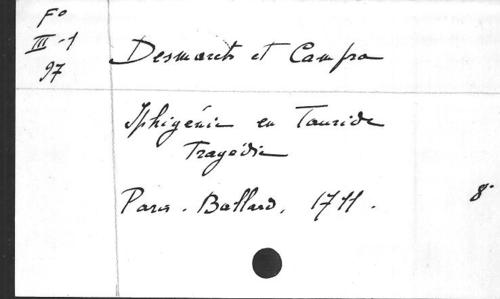 Fo
III-1
97
Desmarets et Campra
Iphigénie en Tauride
Tragédie
Paris. Ballard. 1711. 8°